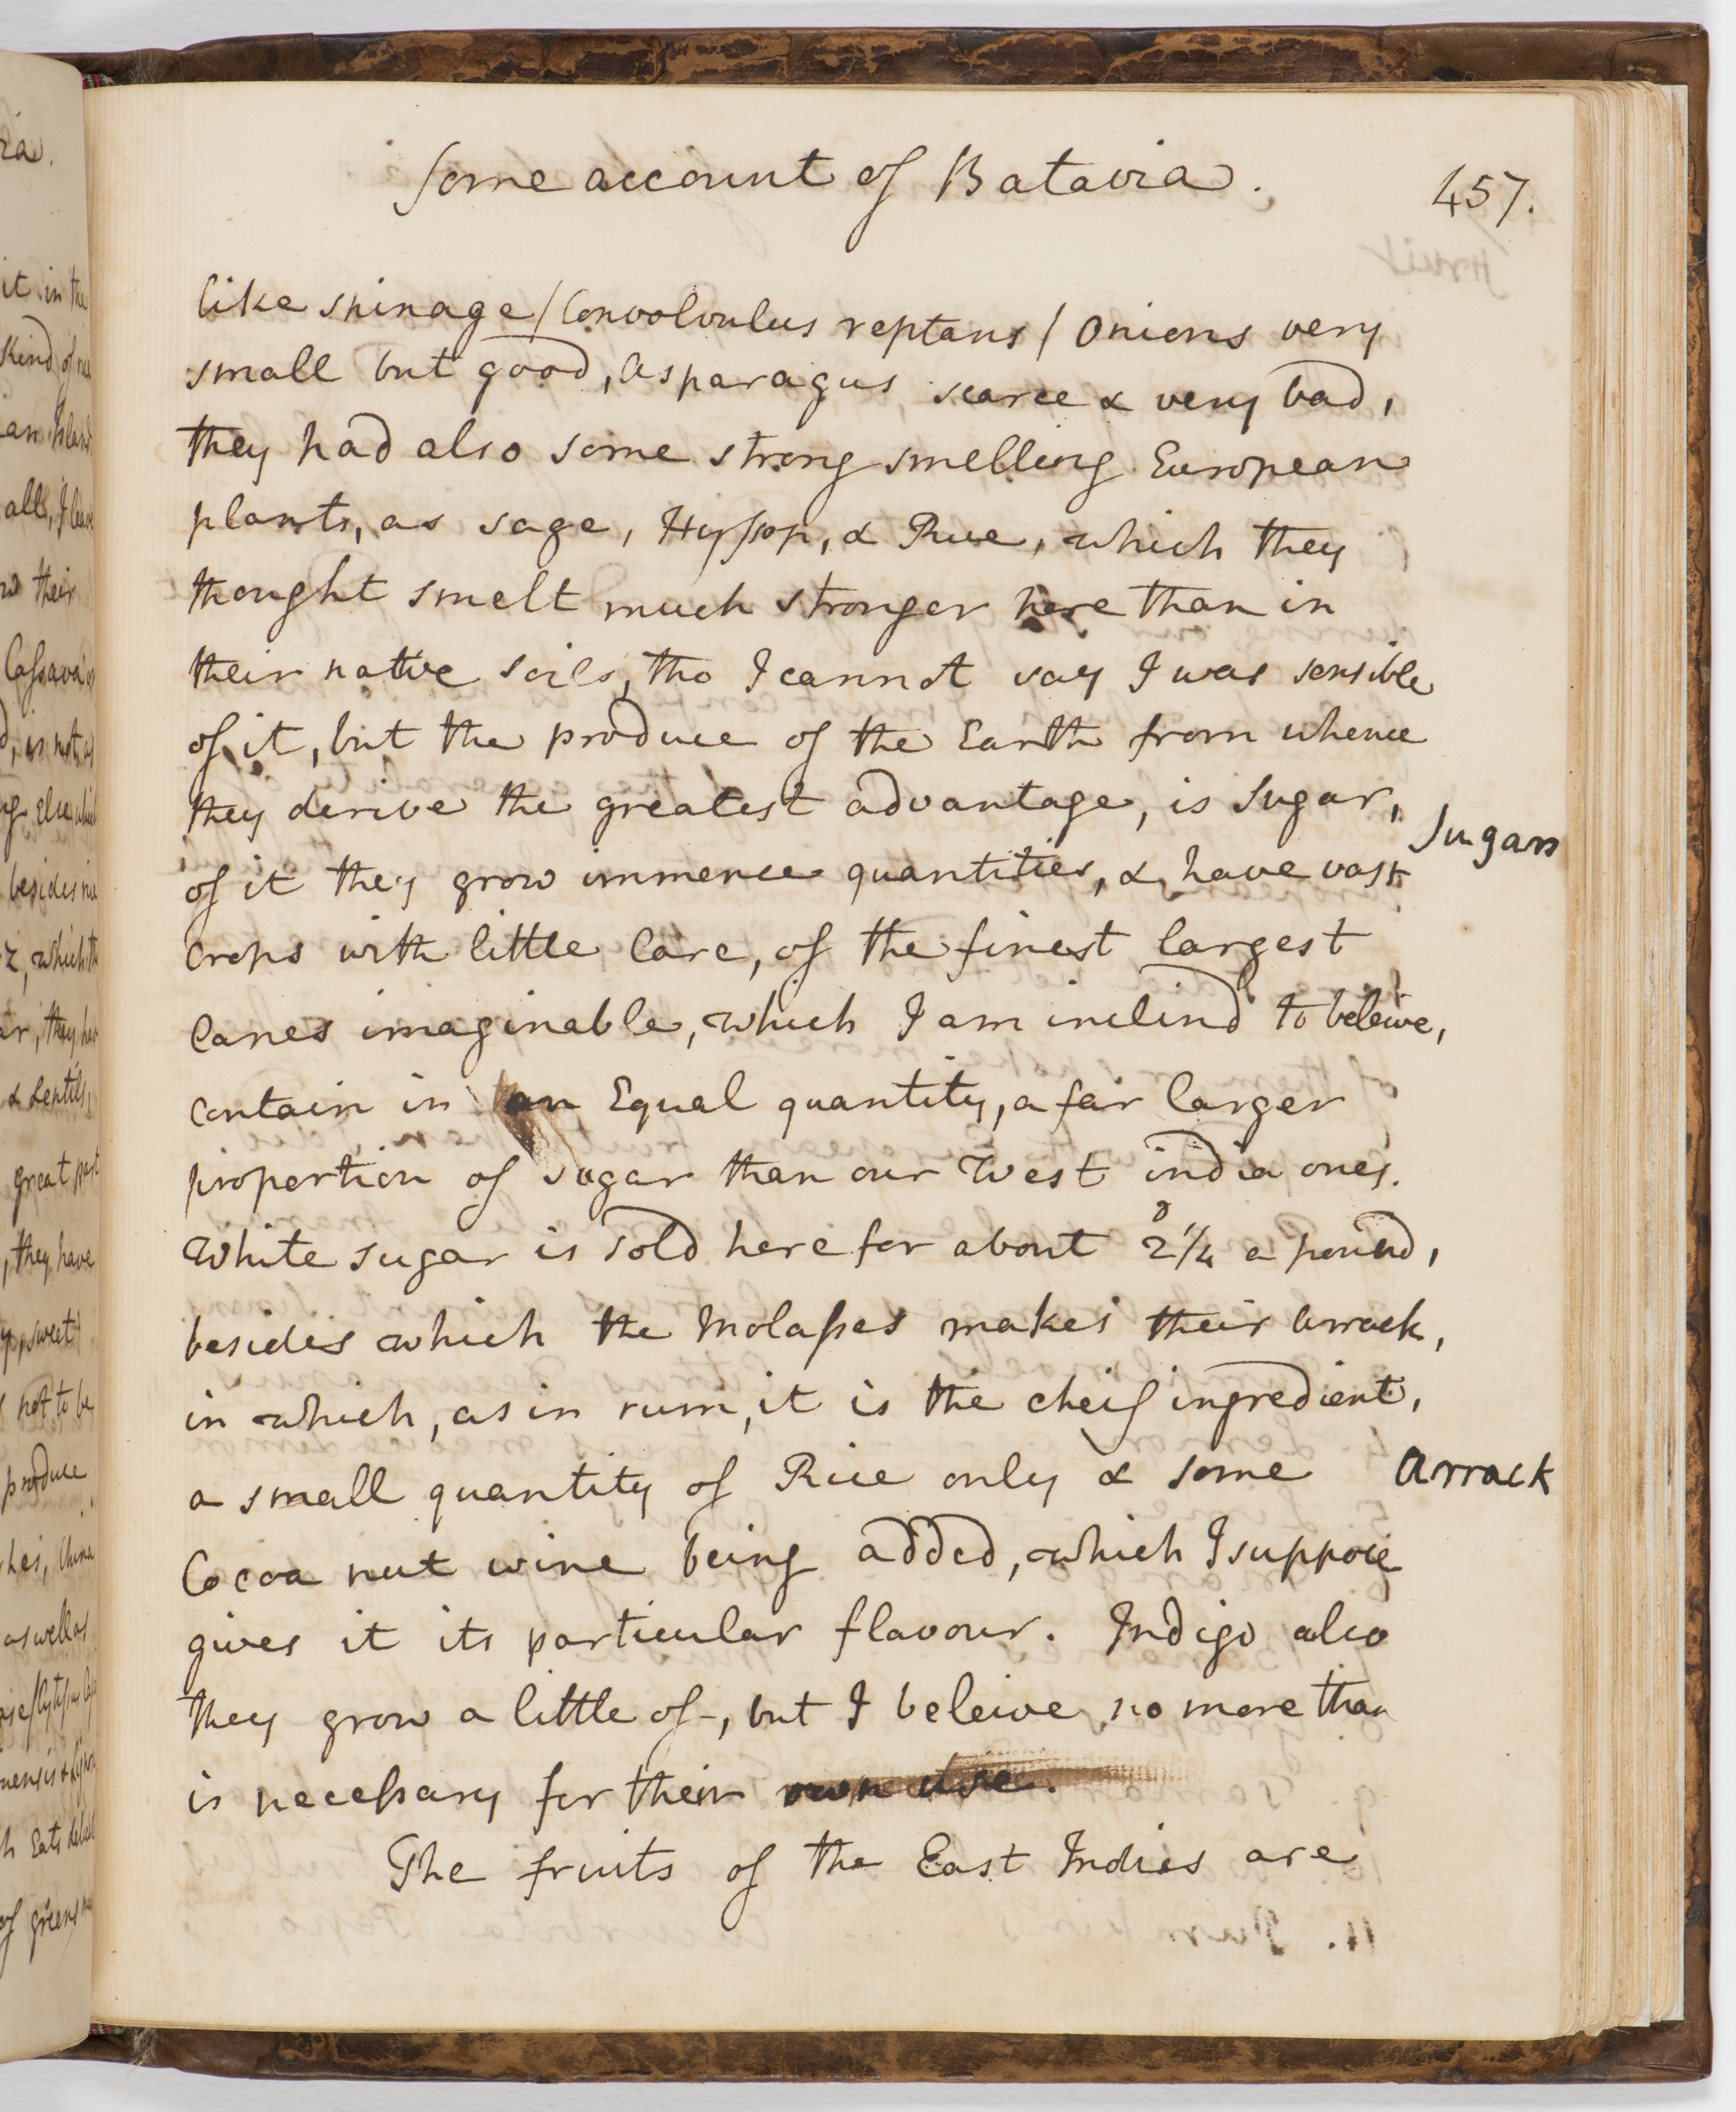 Some account of Batavia.
457.
like spinage / Convolvulus reptans / Onions very
small but good, asparagus scarce & very bad,
they had also some strong smelling European
plants, as sage, Hyssop, & Rue, which they
thought smelt much stronger here than in
their native soils, tho I cannot say I was sensible
of it, but the produce of the Earth from whence
they derive the greatest advantage, is Sugar,
Sugars
of it they grow immence quantities, & have vast
crops with little Care, of the finest largest
Canes imaginable, which I am inclind to beleive,
contain in an Equal quantity, a fair larger
proportion of sugar than our West india ones.
White sugar is sold here for about 2 1/4 d a pound,
besides which the Molasses makes their arrack,
in which, as in rum, it is the cheif ingredient,
a small quantity of Rice only & some
Arrack
Cocoa nut wine being added, which I suppose
gives it its particular flavour. Indigo also
they grow a little of, but I beleive no more than
is necessary for their own use.
The fruits of the East Indies are